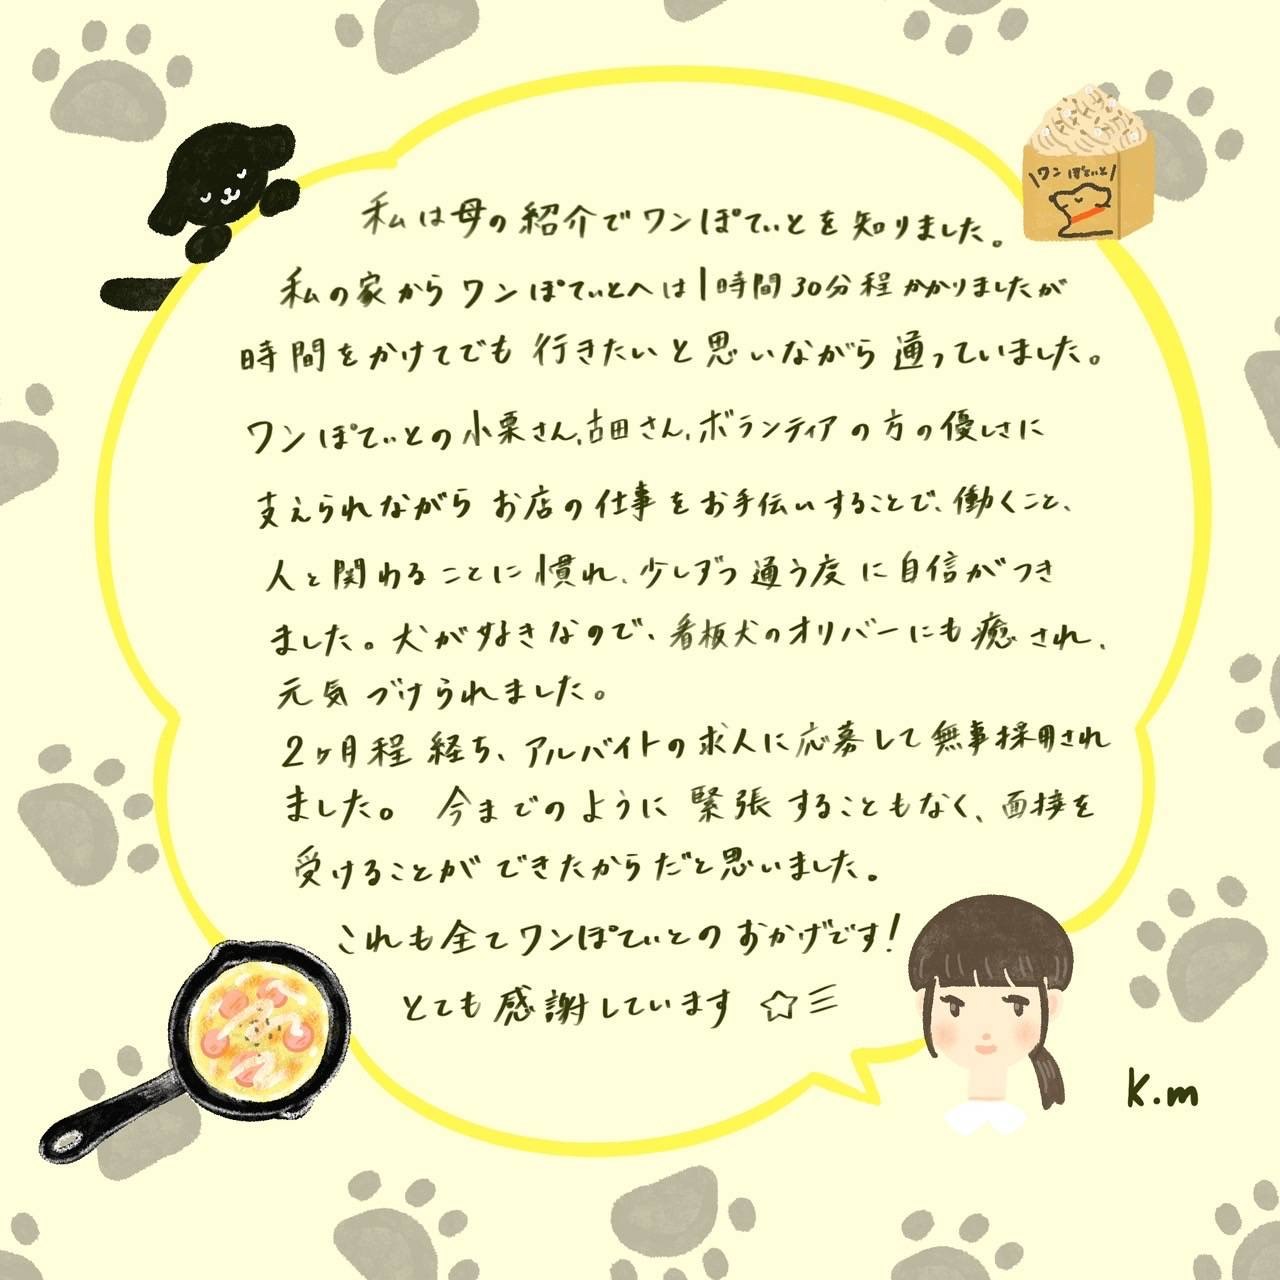 私は母の紹介でワンぽてぃとを知りました。
私の家からワンぽてぃとへは1時間30分程かかりましたが
時間をかけてでも行きたいと思いながら通っていました。
ワンぽてぃとの小栗さん、古田さん、ボランティアの方の優しさに
支えられながらお店の仕事をお手伝いすることで、働くこと、
人と関わることに慣れ、少しずつ通う度に自信がつき
ました。犬が好きなので、看板犬のオリバーにも癒され、
元気づけられました。
2ヶ月程経ち、アルバイトの求人に応募して無事採用され
ました。 今までのように緊張することもなく、面接を
受けることができたからだと思いました。
これも全てワンぽてぃとのおかげです!
とても感謝しています☆三
\ワンぽてぃと/
K.m